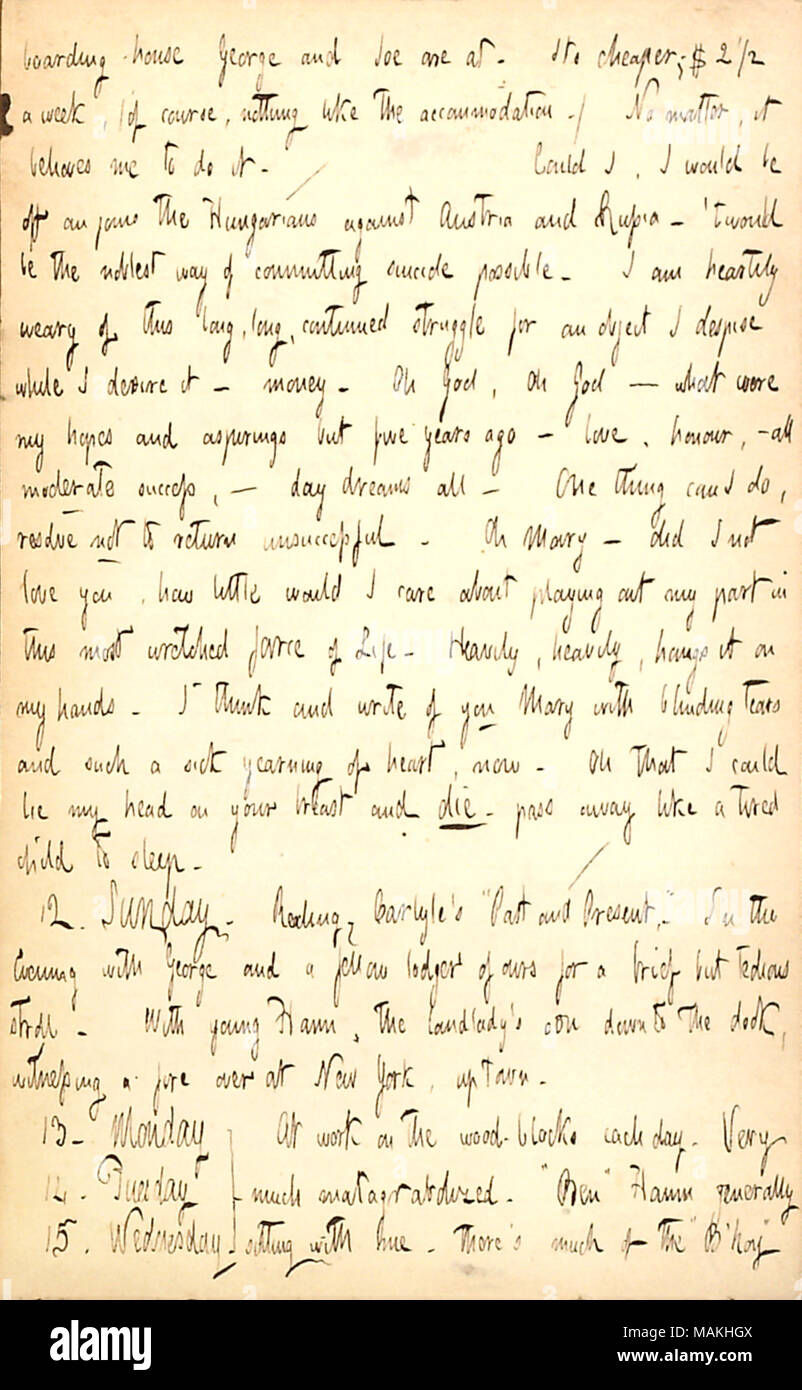 boarding house George and Joe are at. Its cheaper; $ 2 1/2
a week, (of course, nothing like the accommodation.) No matter, it
behoves me to do it. Could I, I would be
off an joins the Hungarians against Austria and Russia – 'twould
be the noblest way of committing suicide possible. I am heartily
weary of this long, long, continued struggle for an object I despise
while I desire it – money. Oh God, Oh God – what were
my hopes and aspirings but five years ago – love, honour, – all
moderate success, – day dreams all – One thing can I do,
resolve not to return unsuccessful. Oh Mary – did I not
love you, how little would I care about playing out my part in
this most wretched farce of Life. Heavily, heavily, hangs it on
my hands. I think and write of you Mary with blinding tears
and such a sick yearning of heart, now. Oh that I could
lie my head on your breast and die. pass away like a tired
child to sleep.
12. Sunday. Reading Carlyle's "Past and Present." In the
Evening with George and a fellow lodger of ours for a brief but tedious
stroll. With young Hann, the landlady's son down to the dock,
witnessing a fire over at New York, up town.
13. Monday At work on the wood-blocks each day. Very
14. Tuesday much matagrabolized. "Ben" Hann generally
15. Wednesday sitting with me. There's much of the "B'hoy"
alamy
Image ID: MAKHGX
www.alamy.com